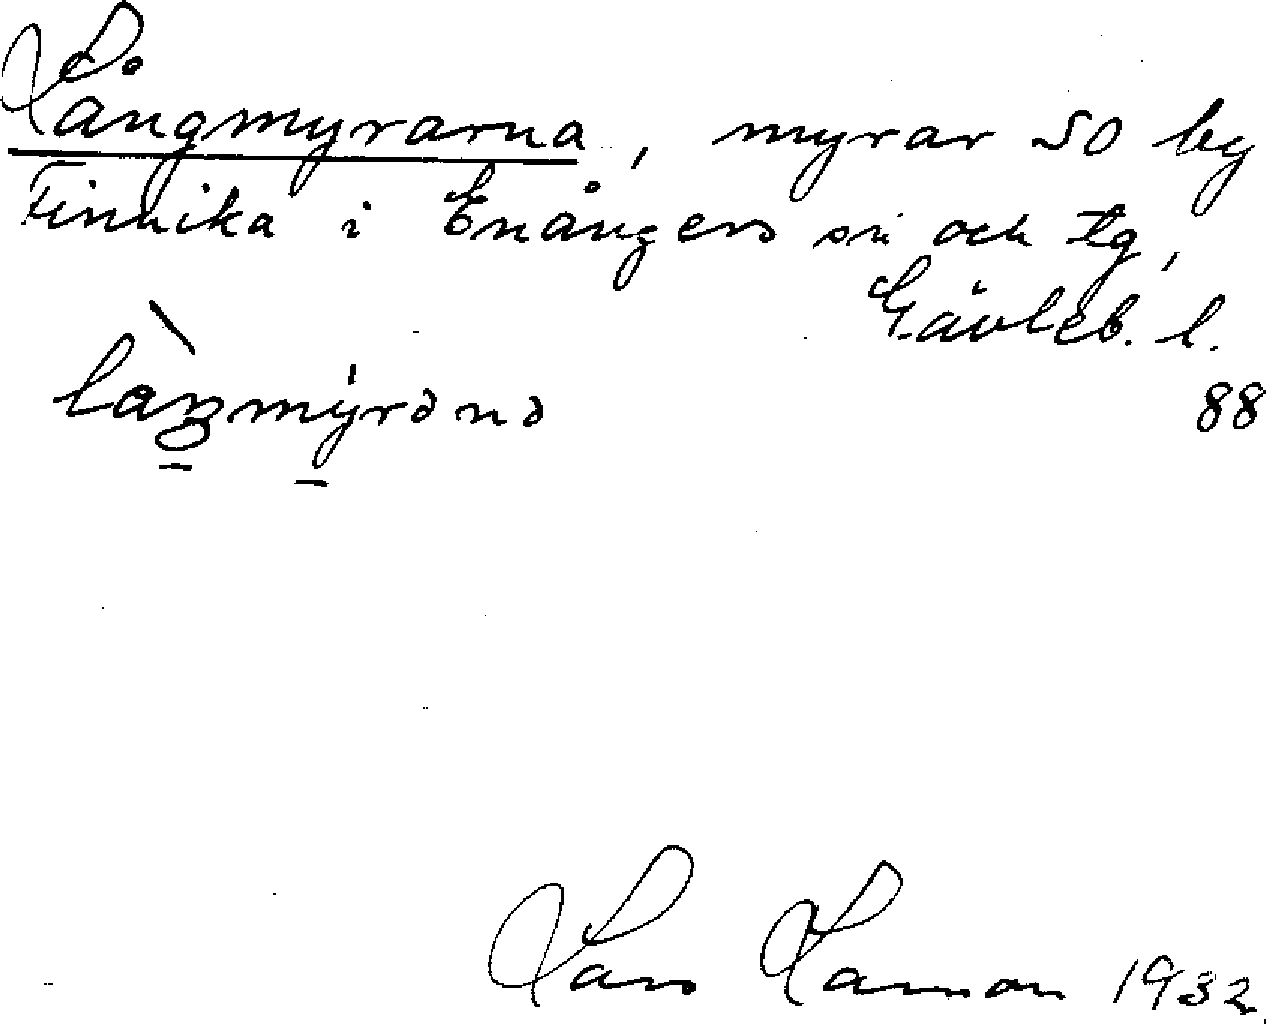 Långmyrarna, myrar SO by
Finnika i Enångers sn och tg,
Gävleb. l.
88
Lars Larsson 1932